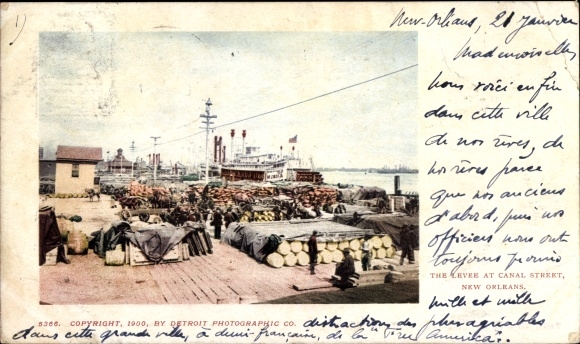 1)
New-Orléans, 21 Janvier
Mademoiselle,
Nous voici enfin
dans cette ville
de nos rêves, de
nos rêves parce
que nos anciens
d'abord, puis nos
officiers nous ont
toujours promis
THE LEVEE AT CANAL STREET,
NEW ORLEANS.
mille et mille
5366. COPYRIGHT, 1900, BY DETROIT PHOTOGRAPHIC CO.
distractions des plus agréables
dans cette grande ville, à demi-française, de la "
America".